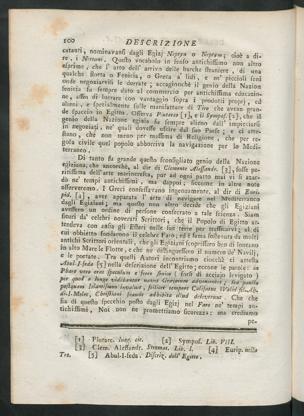 100 DESCRIZIONE
catanti, nominavansi dagli Egizj Nepryn o Nepram; cioè a di-
re, i Nettuni. Questo vocabolo in senso antichissimo non altro
esprime, che l' atto dell' arrivo delle barche straniere, di una
qualche flotta o Fenicia, o Greca a' lidi, e ne' piccioli seni
onde negoziarvisi le derrate; accagionchè il genio della Nazion
fenicia fu sempre dato al commercio per antichissima educazio-
ne, affin di lucrare con vantaggio sopra i prodotti proprj, ed
alieni, e specialmente sulle manifatture di Tiro che aveano gran-
de spaccio in Egitto. Osserva Plutarco [1], e il Sympos. [2], che il
genio della Nazione egizia fu sempre alieno dall' impicciarsi
in negoziati, ne' quali dovesse uscire dal suo Paese; e ci atte-
stano, che non meno per massima di Religione, che per re-
gola civile quel popolo abborriva la navigazione per lo Medi-
terraneo.
Di tanto fu grande questo sconsigliato genio della Nazione
egiziana; che ancorchè, al dir di Clemente Alessandr. [3], fosse pe-
ritissima dell' arte marineresca, pur ad ogni patto mai vi si azzar-
dò ne' tempi antichissimi, ma dappoi; siccome in altre note
osserveremo. I Greci confessavano ingenuamente, al dir di Eurip-
pid. [4], aver apparata l' arte di navigare nel Mediterraneo
dagli Egiziani; ma questo non altro decide che gli Egiziani
avessero un ordine di persone consecrato a tale scienza. Siam
sicuri da' celebri novestri Scrittori, che il Popolo di Egitto at-
tendeva con ansia gli Esteri nelle sue terre per trafficarvi; al di
cui obbietto fondarono il celebre Faro; ed è fama sostenuta da molti
antichi Scrittori orientali, che gli Egiziani scoprissero ben di lontano
in alto Mare le Flotte, e che ne distinguessero il numero de' Navilj,
e le portate. Tra questi Autori incontriamo ciocchè ci attesta
Abul-I-feda [5] nella descrizione dell' Egitto; eccone le parole: in
Pharo vero erat speculum e ferro sinico (ossia di acciajo levigato)
per quod e longe videbantur naves Græcorum advenientes; sed paullo
postquam Islamismus invaluit, scilicet tempore Califatus Walid fil. Ab-
di-l-Malec, Christiani fraude adhibita illud deleverunt. Che che
sia di questo specchio posto dagli Egizj nel Faro ne' tempi an-
tichissimi, Noi non ne promettiamo sicurezza; ma crediamo
pe-
[1] Plutarc. loug. cit. [2] Sympos. Lib. VIII.
[3] Clem. Alessandr. Stromat. Lib. I. [4] Eurip. nelle
Tro. [5] Abul-I-feda. Discriz. dell' Egitto.